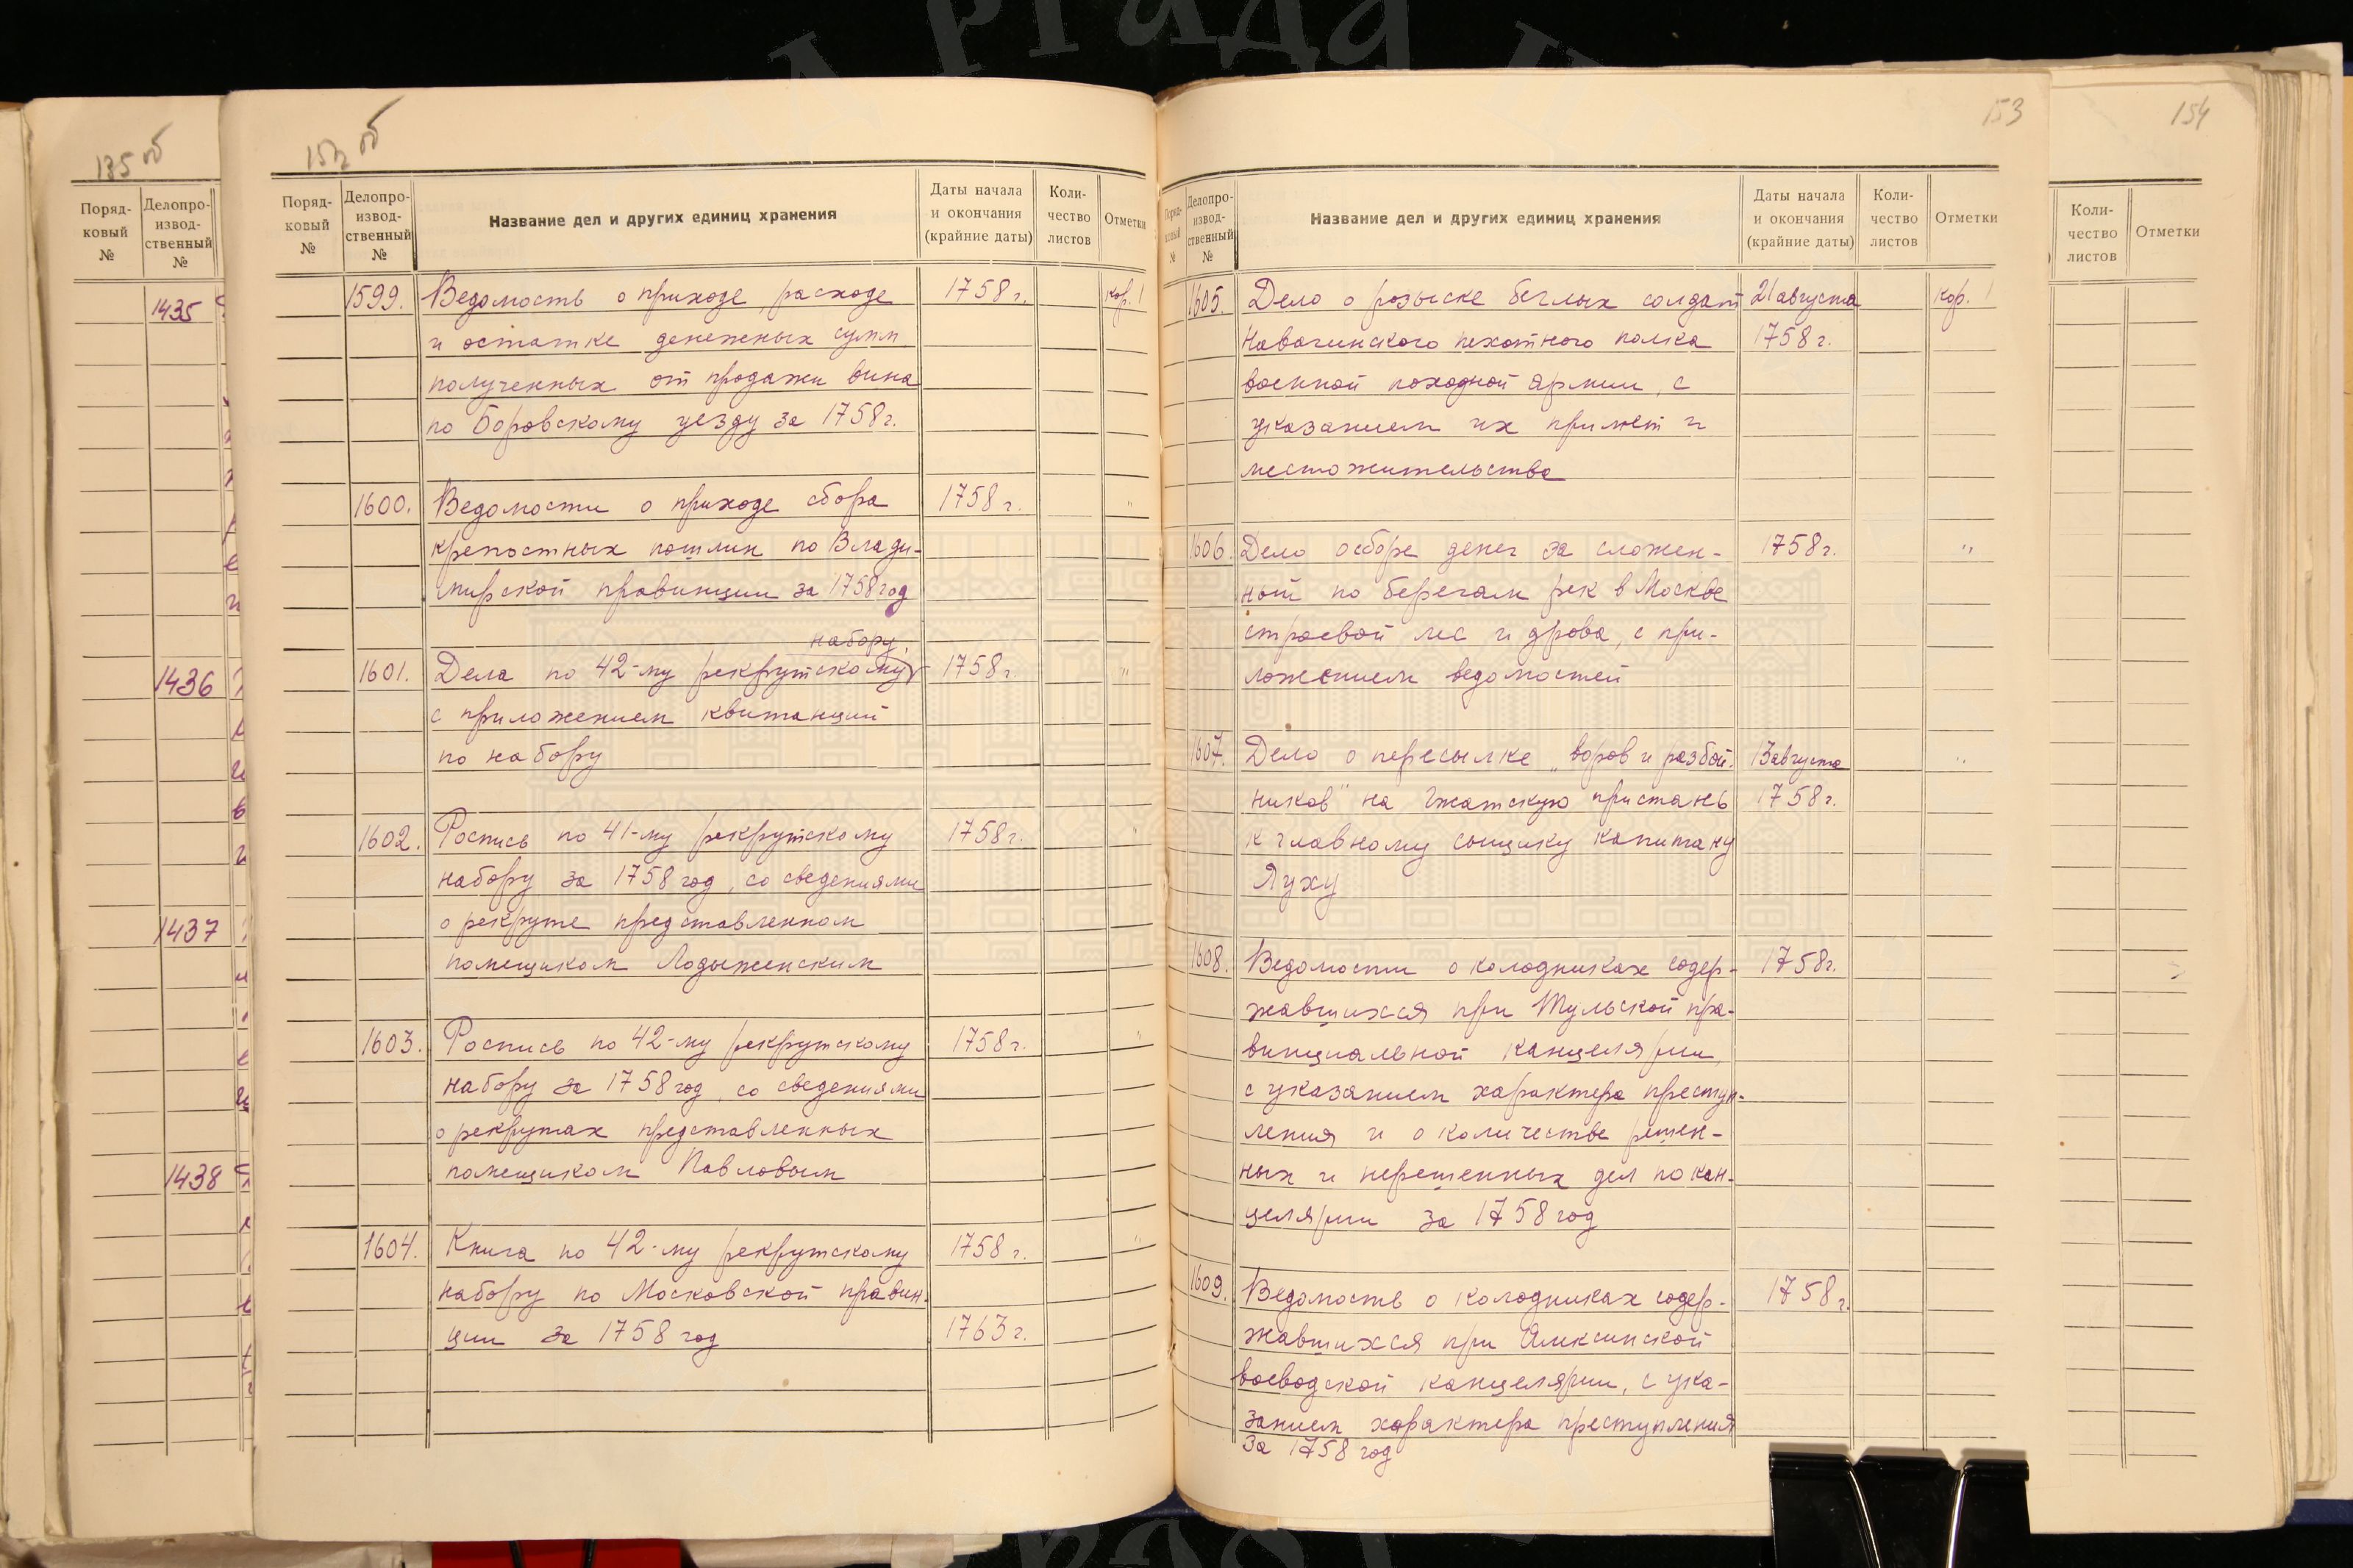 135 об
Поряд-
ковый
№
Делопро-
извод-
ственный
№
1435
1436
1437
1438
152 об
Поряд-
ковый
№
Делопро-
извод-
ственный
№
Название дел и других единиц хранения
Даты начала
и окончания
(крайние даты)
Коли-
чество
листов
Отметки
1599. Ведомость о приходе, расходе 1758 г. кор. 1
и остатке денежных сумм
полученных от продажи вина
по Боровскому уезду за 1758 г.
1600. Ведомости о приходе сбора 1758 г. "
крепостных пошлин по Влади-
мирской провинции за 1758 год
набору,
1601. Дела по 42-му рекрутскому 1758 г. "
с приложением квитанций
по набору
1602. Роспись по 41-му рекрутскому 1758 г. "
набору за 1758 год, со сведениями
о рекруте представленном
помещиком Лодыженским
1603. Роспись по 42-му рекрутскому 1758 г. "
набору за 1758 год, со сведениями
о рекрутах представленных
помещиком Павловым
1604. Книга по 42-му рекрутскому 1758 г. "
набору по Московской провин-
ции за 1758 год 1763 г.
153
Поряд-
ковый
№
Делопро-
извод-
ственный
№
Название дел и других единиц хранения
Даты начала
и окончания
(крайние даты)
Коли-
чество
листов
Отметки
1605. Дело о розыске беглых солдат 21 августа кор. 1
Навагинского пехотного полка 1758 г.
военной походной армии, с
указанием их примет и
местожительства
1606. Дело о сборе денег за сложен- 1758 г. "
ный по берегам рек в Москве
строевой лес и дрова, с при-
ложением ведомостей
1607. Дело о пересылке "воров и разбой- 13 августа "
ников" на Гжатскую пристань 1758 г.
к главному сыщику капитану
Яуху
1608. Ведомости о колодниках содер- 1758 г.
жавшихся при Тульской про-
винциальной канцелярии,
с указанием характера преступ-
ления и о количестве решен-
ных и нерешенных дел по кан-
целярии за 1758 год
1609. Ведомость о колодниках содер- 1758 г.
жавшихся при Алексинской
воеводской канцелярии, с ука-
занием характера преступления
за 1758 год
154
Коли-
чество
листов
Отметки